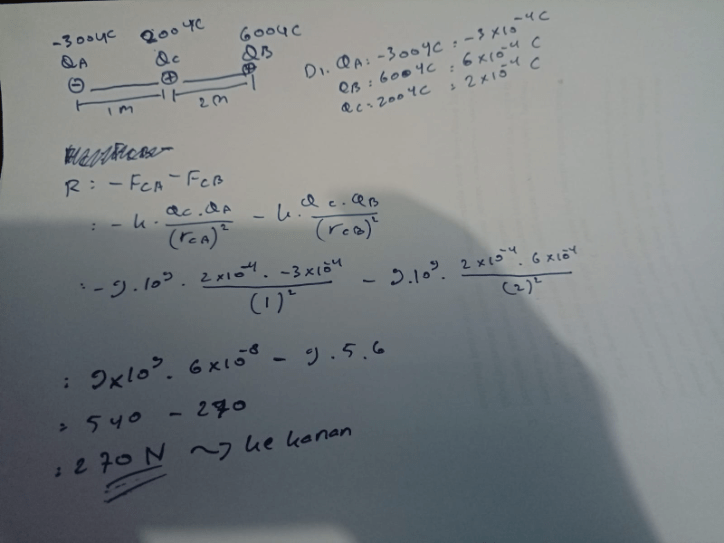 -300μC 200μC 600μC
QA QC QB
⊖ ⊕ ⊕
1 m 2 m
D1. QA : -300μC : -3×10⁻⁴ C
QB : 600μC : 6×10⁻⁴ C
QC : 200μC : 2×10⁻⁴ C
R : - FCA - FCB
: - k · QC · QA / (rCA)² - k · QC · QB / (rCB)²
: - 9·10⁹ · 2×10⁻⁴ · -3×10⁻⁴ / (1)² - 9·10⁹ · 2×10⁻⁴ · 6×10⁻⁴ / (2)²
: 9×10⁹ · 6×10⁻⁸ - 9.5.6
= 540 - 270
: 270 N ⤳ ke kanan